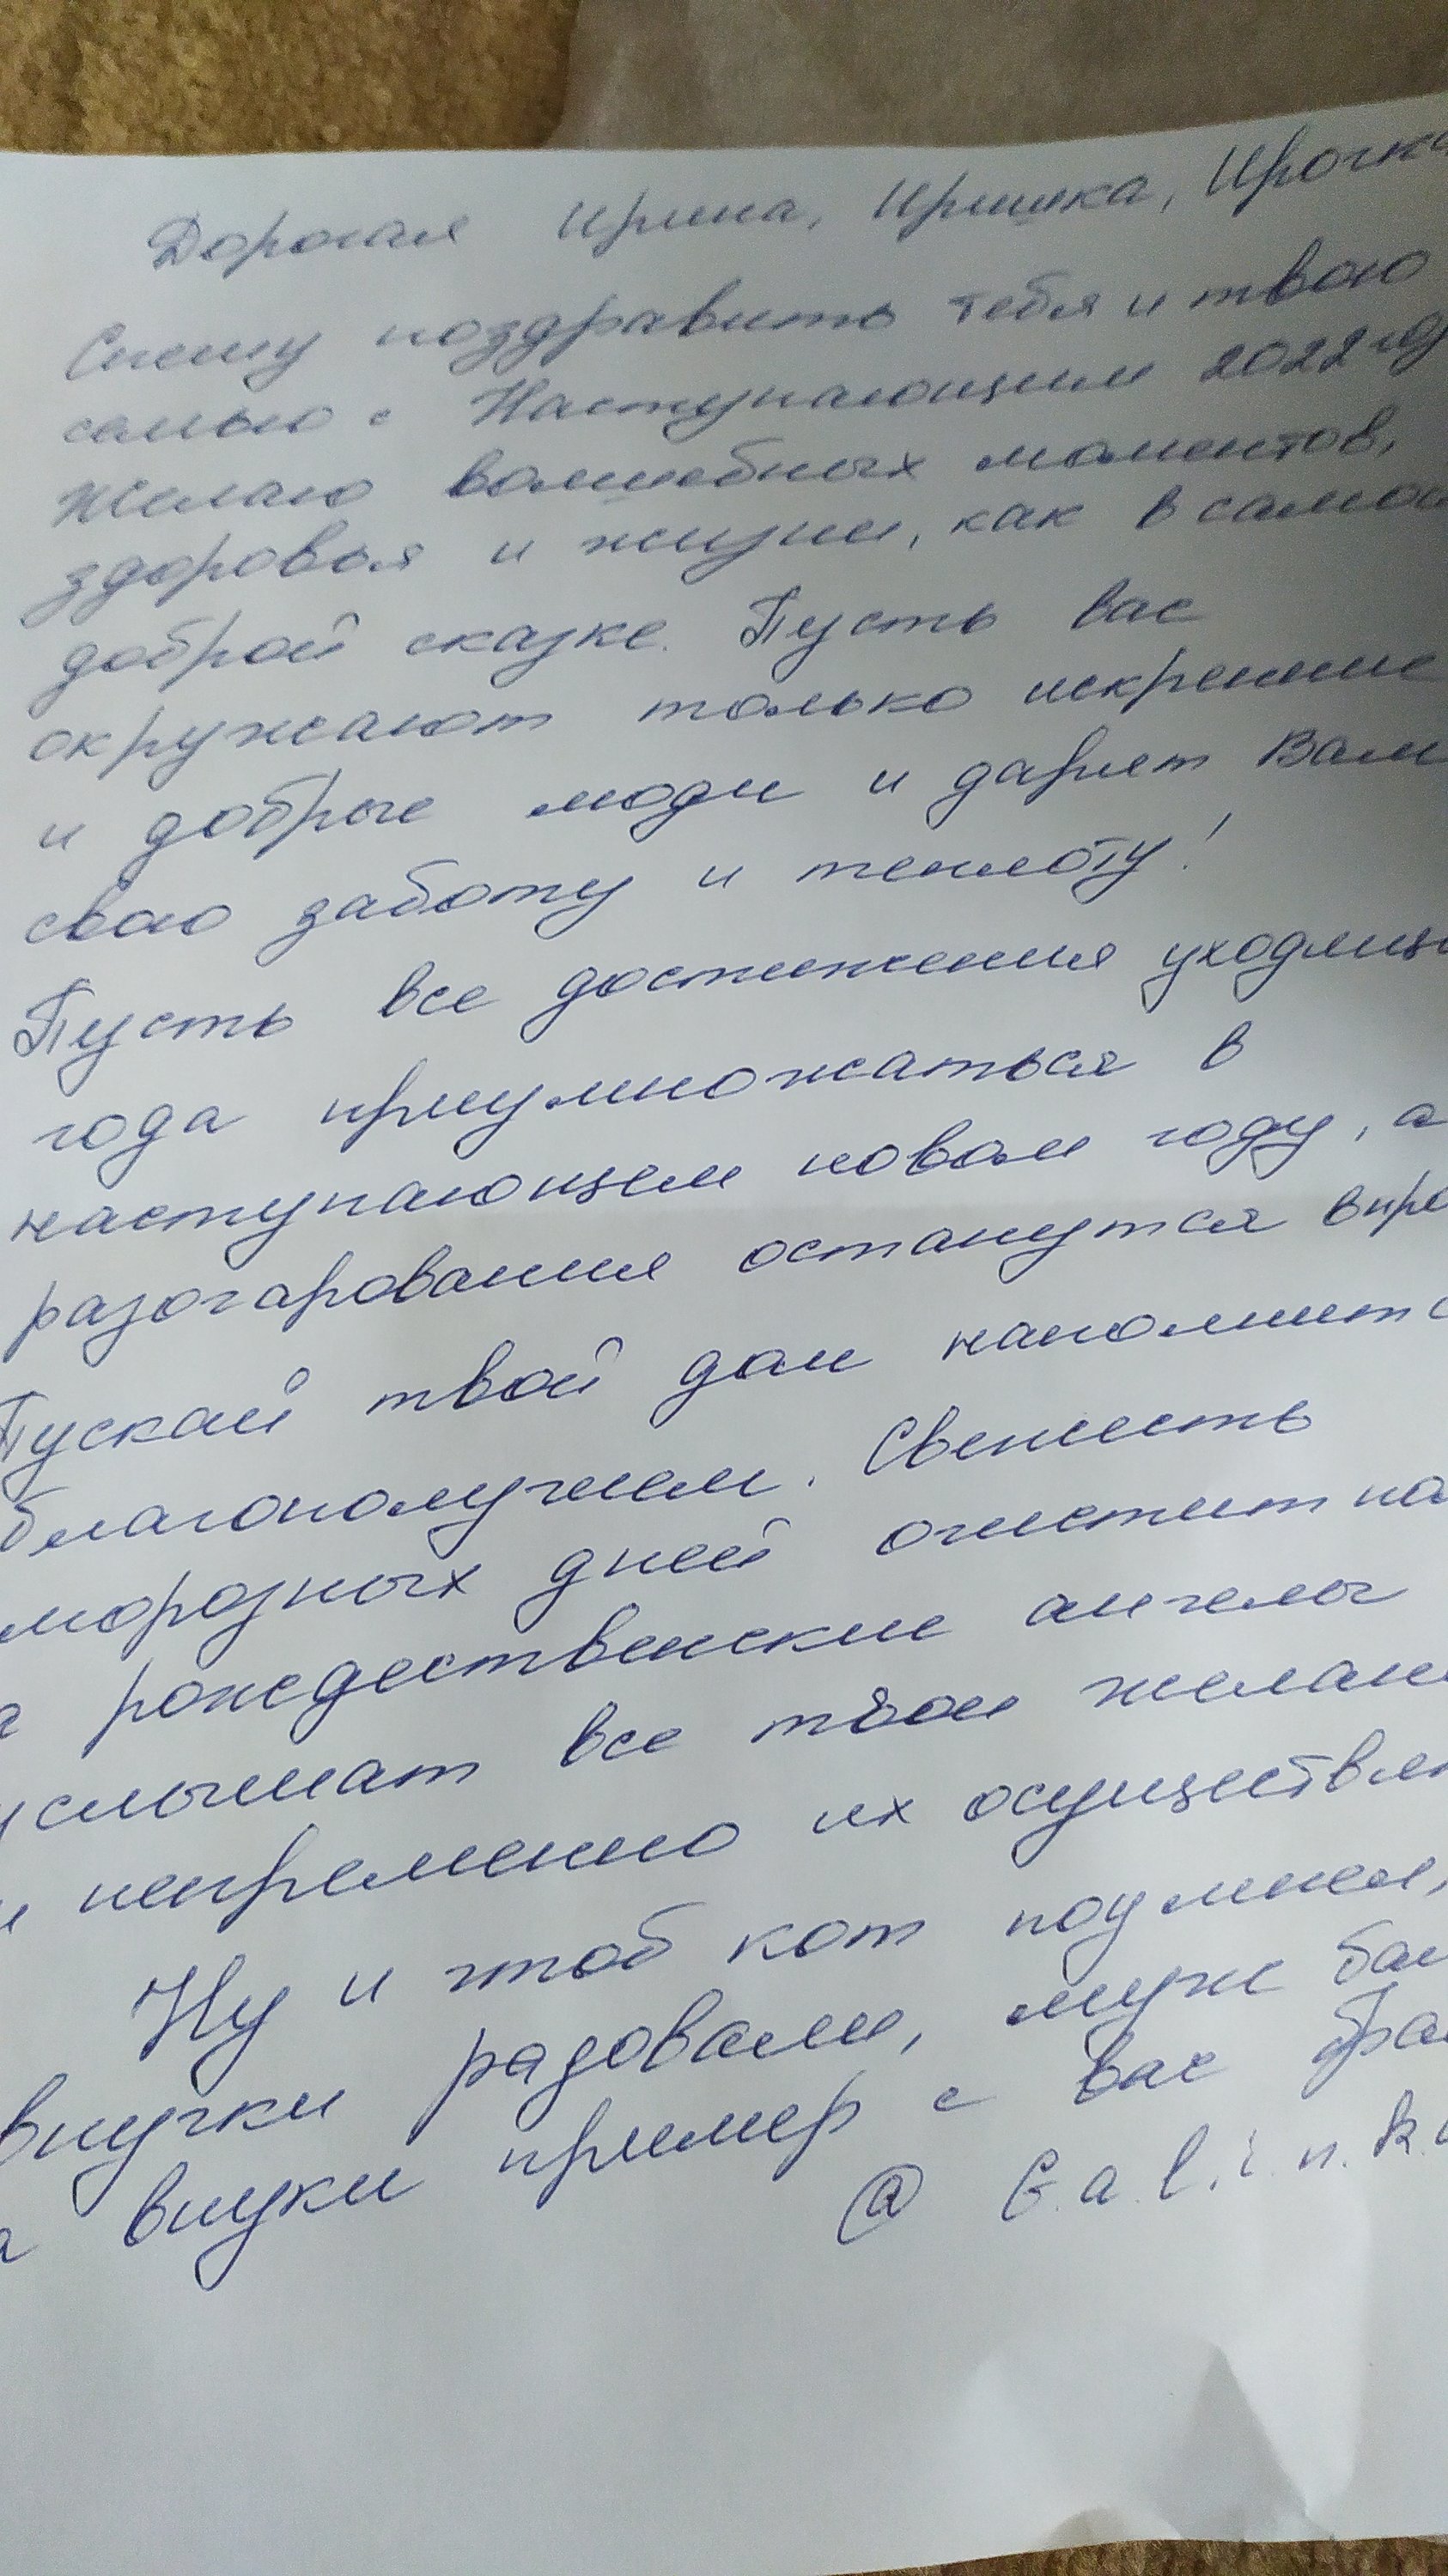 Дорогая Ирина, Иришка, Ирочка
Спешу поздравить тебя и твою
самью с Наступающим 2022 год
Желаю волшебных моментов,
здоровья и жизни, как в самой
доброй сказке. Пусть вас
окружают только искренние
и добрые люди и дарят Вам
свою заботу и теплоту!
Пусть все достижения уходящ
года приумножаться в
наступающем новом году, а
разочарования останутся в про
Пускай твой дом наполнитс
благополучием. Свежесть
морозных дней очистит по
а рождественские ангелы
услышат все твои желан
и непременно их осуществл
Ну и чтоб кот поумнел,
внучки радовали, муж бал
а внуки пример с вас брал
@ G.a.l.i.n.k.